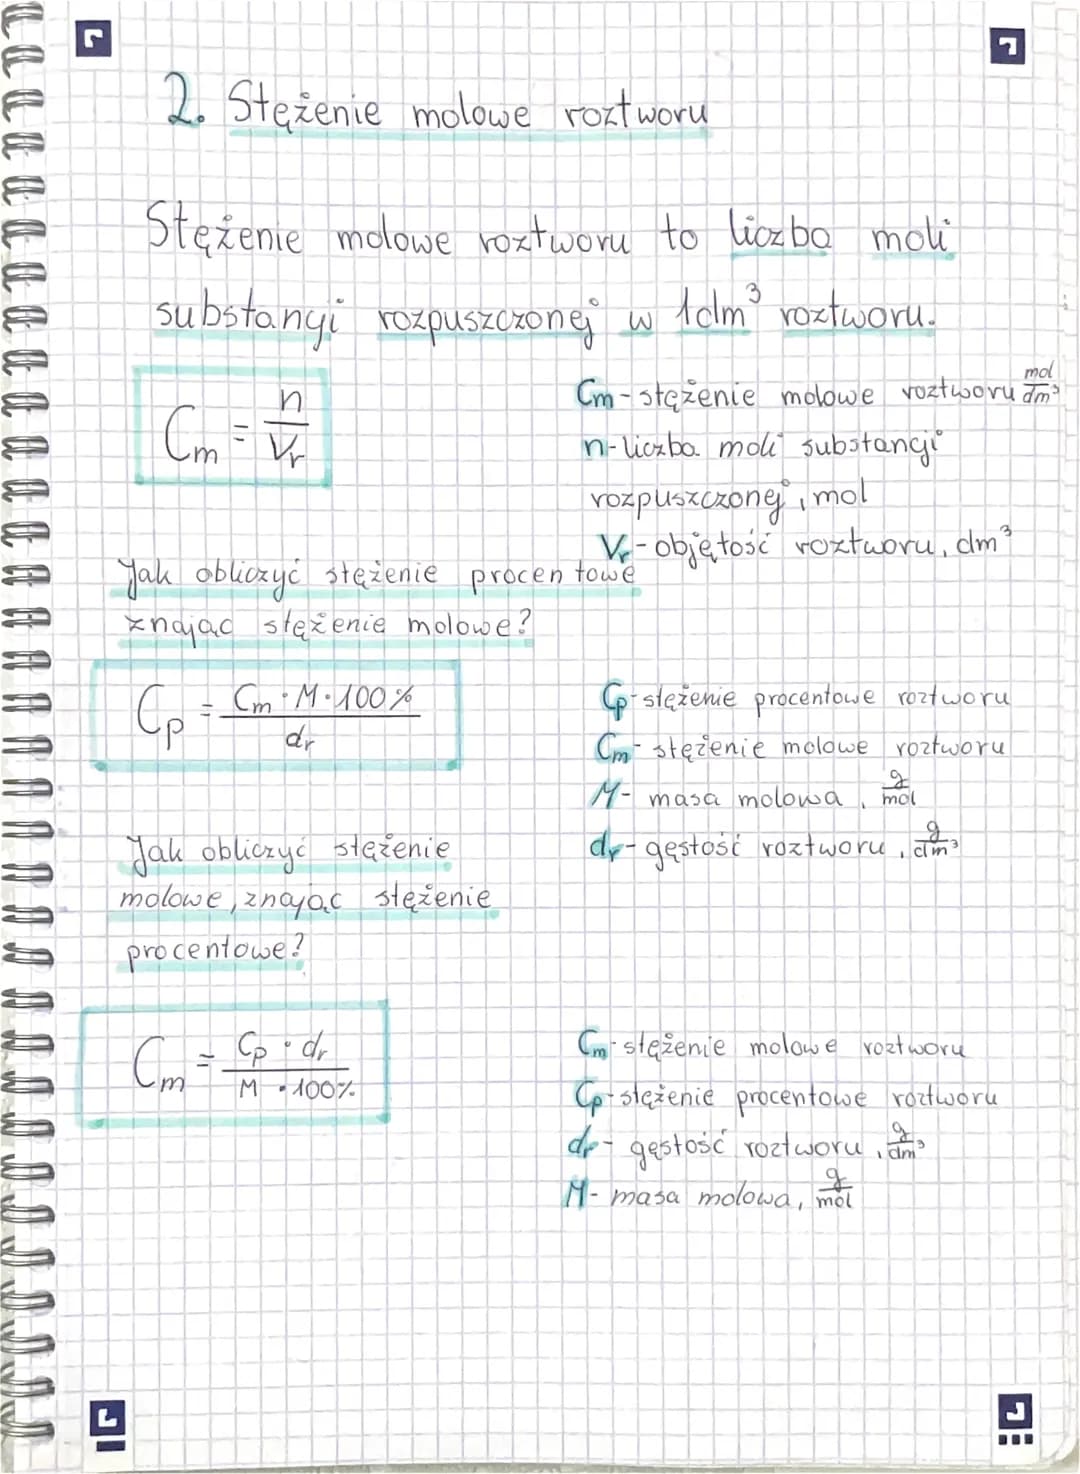 2. Stężenie molowe roztworu
Stężenie molowe roztworu to liczba moli
substancji rozpuszczonej w 1dm³ roztworu.
Cm = n/Vr
Cm - stężenie molowe roztworu mol/dm³
n - liczba moli substancji
rozpuszczonej, mol
Vr - objętość roztworu, dm³
Jak obliczyć stężenie procentowe
znając stężenie molowe?
Cp = Cm · M · 100% / dr
Cp - stężenie procentowe roztworu
Cm - stężenie molowe roztworu
M - masa molowa, g/mol
dr - gęstość roztworu, g/dm³
Jak obliczyć stężenie
molowe, znając stężenie
procentowe?
Cm = Cp · dr / M · 100%
Cm - stężenie molowe roztworu
Cp - stężenie procentowe roztworu
dr - gęstość roztworu, g/dm³
M - masa molowa, g/mol